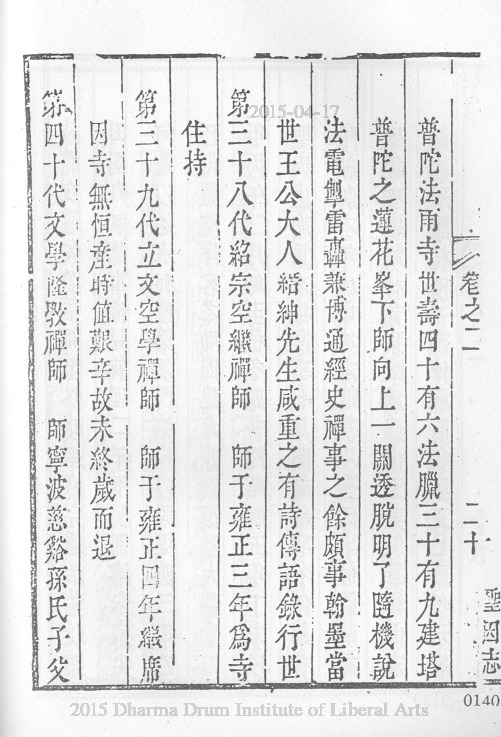 卷之二 二十 聖因志
普陀法雨寺世壽四十有六法臘三十有九建塔
普陀之蓮花峯下師向上一關透脫明了隨機說
法電掣雷轟兼博通經史禪事之餘頗事翰墨當
世王公大人縉紳先生咸重之有詩傳語錄行世
第三十八代紹宗空繼禪師 師于雍正三年爲寺
住持
第三十九代立文空學禪師 師于雍正四年繼席
因寺無恒產時值艱辛故未終歲而退
第四十代文學隆教禪師 師寧波慈谿孫氏子父
2015-04-17
0140
2015 Dharma Drum Institute of Liberal Arts